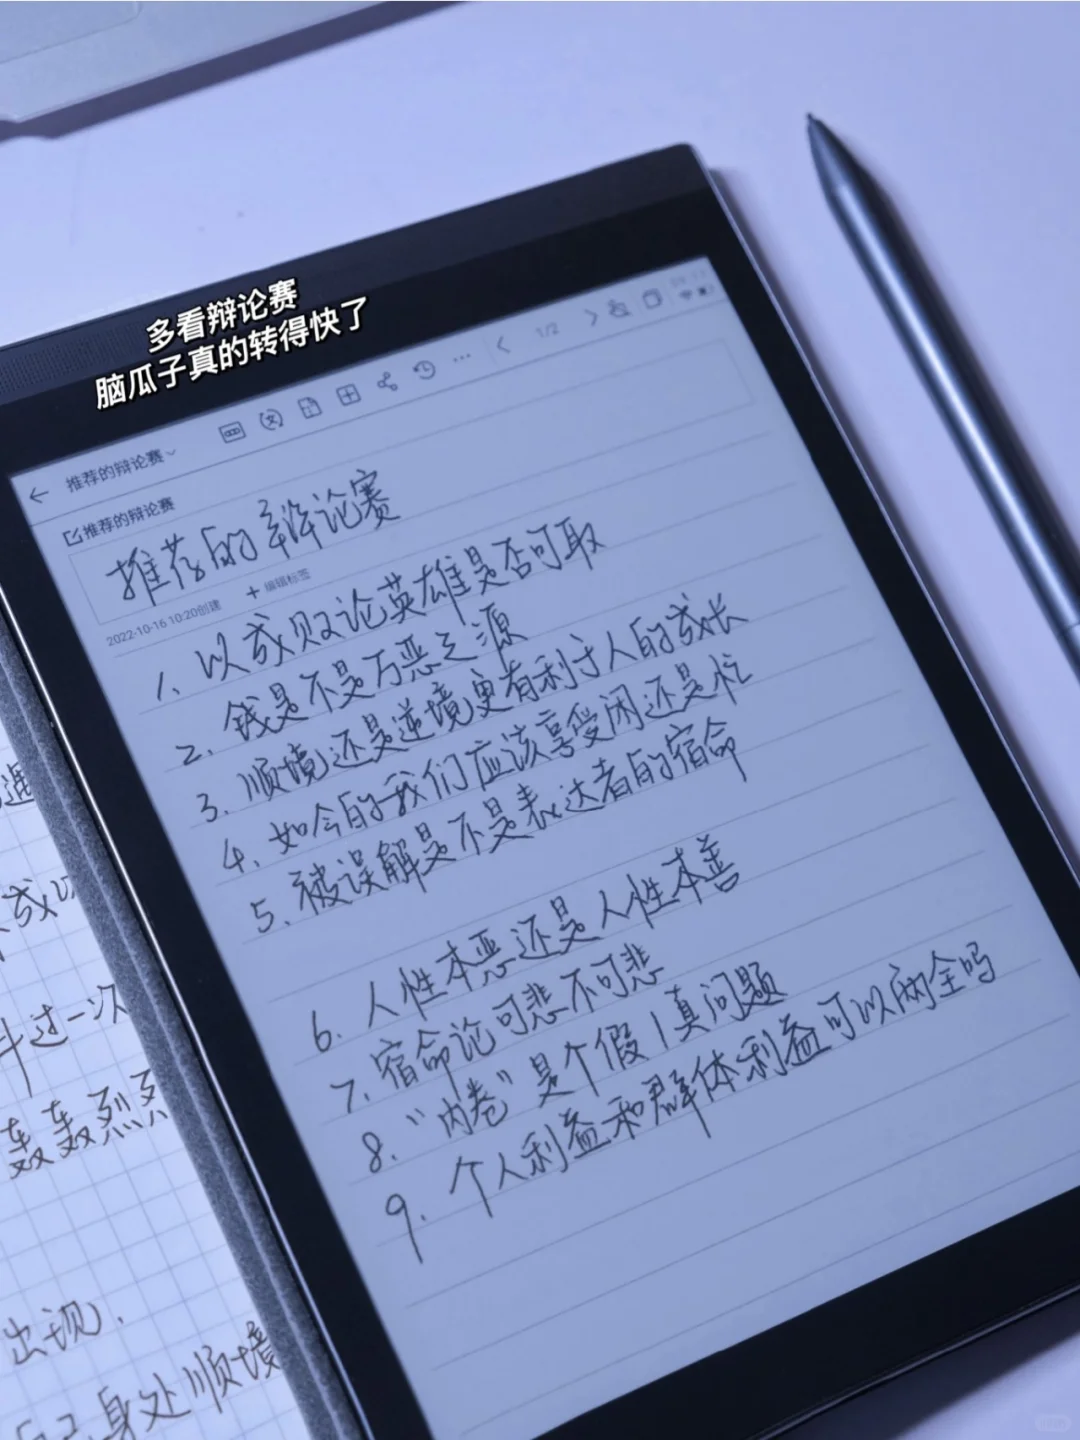 多看辩论赛
脑瓜子真的转得快了
1/2
推荐的辩论赛
推荐的辩论赛
推荐的辩论赛
2022-10-16 10:20创建 + 编辑标签
1. 以成败论英雄是否可取
2. 钱是不是万恶之源
3. 顺境还是逆境更有利于人的成长
4. 如今的我们应该享受闲还是忙
5. 被误解是不是表达者的宿命
6. 人性本恶还是人性本善
7. 宿命论可悲不可悲
8. “内卷”是个假/真问题
9. 个人利益和群体利益可以两全吗
遇
成以
斗过一次
轰轰烈烈
出现.
身处顺境